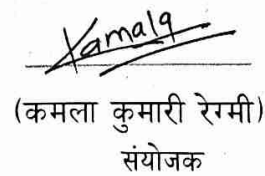 Kamala
(कमला कुमारी रेग्मी)
संयोजक